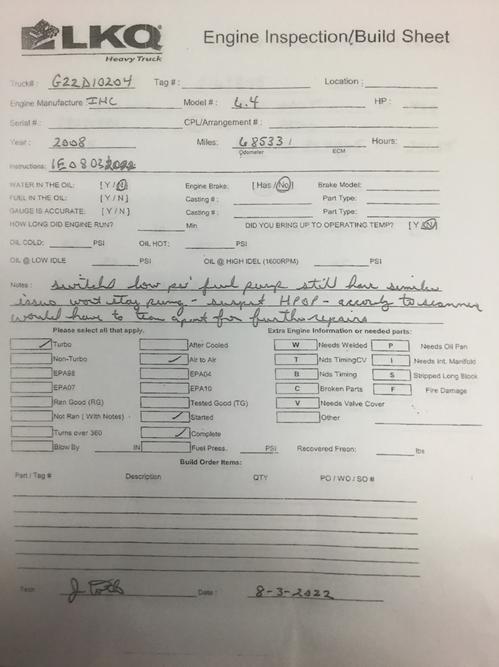 LKQ Engine Inspection/Build Sheet
Heavy Truck
Truck# : G22D10204 Tag # : Location :
Engine Manufacture IHC Model # : 6.4 HP :
Serial # : CPL/Arrangement # :
Year : 2008 Miles: 685331 Hours:
Odometer ECM
Instructions: IE0803
WATER IN THE OIL: [ Y / N ] Engine Brake: [ Has / No ] Brake Model:
FUEL IN THE OIL: [ Y / N ] Casting # : Part Type:
GAUGE IS ACCURATE: [ Y / N ] Casting # : Part Type:
HOW LONG DID ENGINE RUN? Min. DID YOU BRING UP TO OPERATING TEMP? [ Y / N ]
OIL COLD: PSI OIL HOT: PSI
OIL @ LOW IDLE PSI OIL @ HIGH IDEL (1600RPM) PSI
Notes : switched low psi fuel pump still have similar
issue wont stay runng - suspect HPOP - accordg to scanner
would have to tear apart for further repairs
Please select all that apply. Extra Engine Information or needed parts:
Turbo After Cooled W Needs Welded P Needs Oil Pan
Non-Turbo Air to Air T Nds TimingCV I Needs Int. Manifold
EPA98 EPA04 B Nds Timing S Stripped Long Block
EPA07 EPA10 C Broken Parts F Fire Damage
Ran Good (RG) Tested Good (TG) V Needs Valve Cover
Not Ran ( With Notes) Started Other
Turns over 360 Complete
Blow By IN Fuel Press. PSI Recovered Freon: lbs
Build Order Items:
Part / Tag # Description QTY PO / WO / SO #
Tech: Date : 8-3-2022